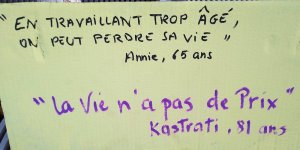 "EN TRAVAILLANT TROP ÂGÉ,
ON PEUT PERDRE SA VIE"
Annie, 65 ans
"La Vie n'a pas de Prix"
Kastrati, 81 ans